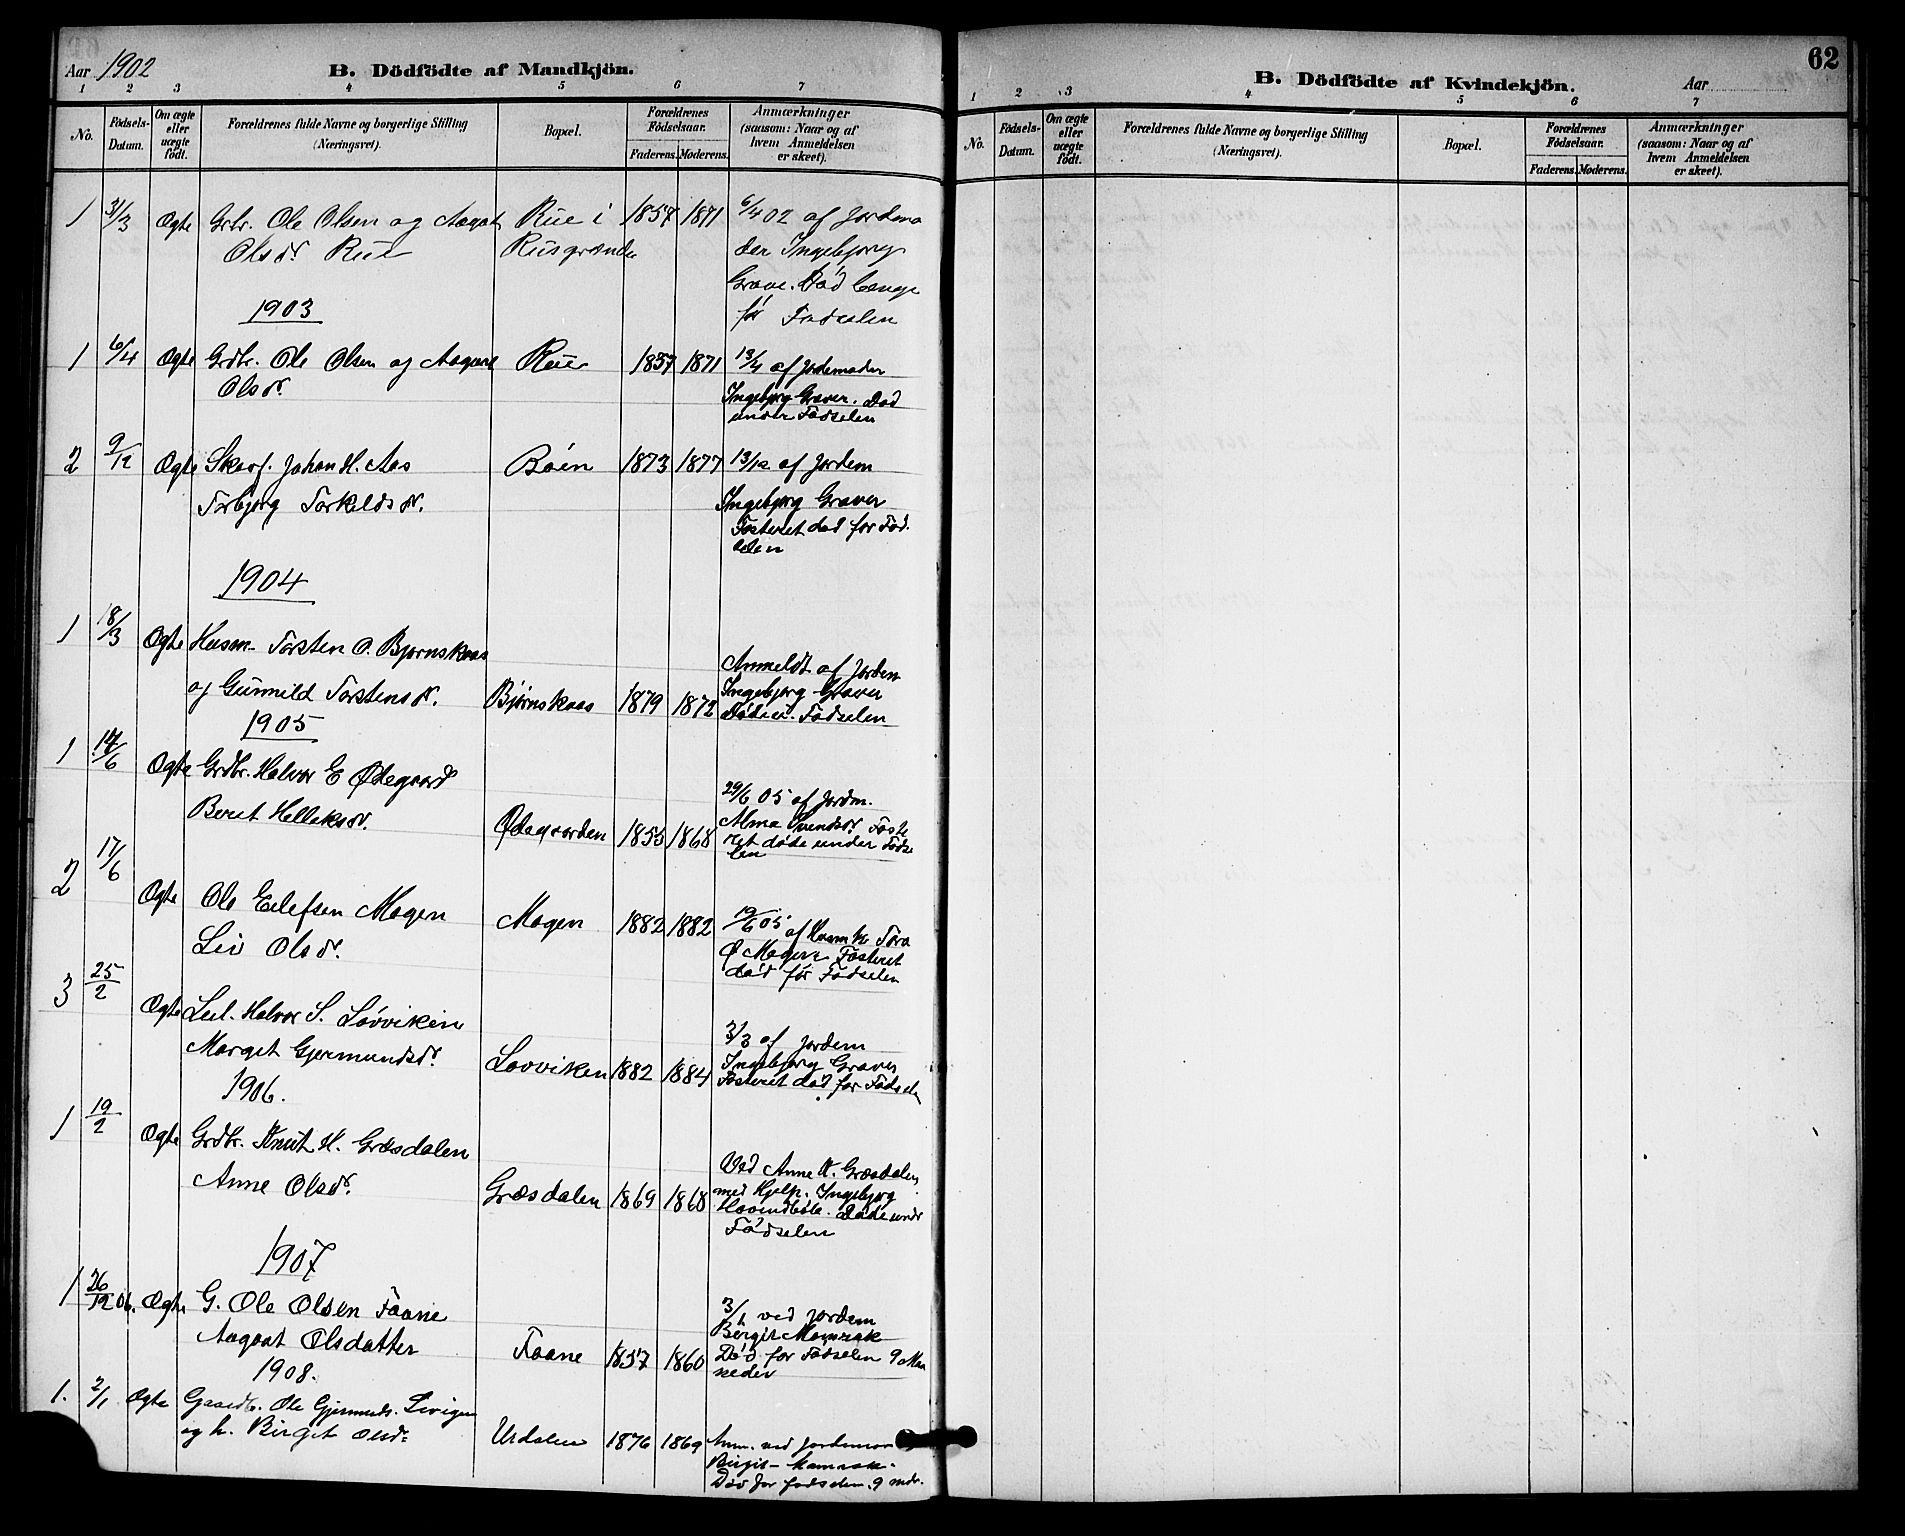 Aar 1902
B. Dödfödte af Mandkjön.
1 2 3 4 5 6 7
No.
Födsels-Datum.
Om ægte eller uægte födt.
Forældrenes fulde Navne og borgerlige Stilling (Næringsvei).
Bopæl.
Forældrenes Födselsaar.
Faderens. Moderens.
Anmærkninger (saasom: Naar og af hvem Anmeldelsen er skeet).
1 31/3 Ægte Grbr. Ole Olsen og Aagot Rue i 1857 1871 6/4 02 af Jordmo
Olsdr Rue Rusgrænde der Ingebjorg
Graver. Død længe
før Fødselen
1903
1 6/4 Ægte Grdbr. Ole Olsen og Aagot Rue 1857 1871 13/4 af Jordemoder
Olsdr. Ingebjørg Graver. Død
under Fødselen
2 9/12 Ægte Skarf. Johan H. Aas Bøen 1873 1877 13/12 af Jordem
Torbjørg Torkeldsdr. Ingebjørg Graver
Fosteret død før Fød.
selen
1904
1 18/3 Ægte Husm. Torsten O. Bjørnskaas
og Gunnild Torstensdr. Bjørnskaas 1879 1872 Anmeldt af Jordem
Ingebjørg Graver
Død u. Fødselen
1905
1 14/6 Ægte Grdbr. Halvor E Ødegaard
Berit Helleksdr. Ødegaarden 1855 1868 29/6 05 af Jordm.
Alma Svendsdr. Foste
ret døde under Fødse
len
2 17/6 Ægte Ole Eilefsen Mogen Mogen 1882 1882 19/6 05 af Husmk. Tora
Liv Olsdr. Ø Mogen Fosteret
død før Fødselen
3 25/2 Ægte Leil. Halvor S. Løvviken
Marget Gjermundsdr. Løvviken 1882 1884 3/3 af Jordem
Ingebjørg Graver
Fosteret død før Fødselen
1906.
1 19/2 Ægte Grdbr. Knut H. Græsdalen
Anne Olsdr. Græsdalen 1869 1868 Ved Anne K. Græsdalen
med Hjelp. Ingebjørg
Døde under
Fødselen
1907
1 26/12 06. Ægte G. Ole Olsen Faane
Aagaat Olsdatter Faane 1857 1860 3/1 ved Jordem
Bergit Mamrak
Død før Fødselen 9 Maa
neder
1908.
1. 2/1 Ægte Gaardbr. Ole Gjermunds.
og h. Birgit Olsd: Urdalen 1876 1869 Anm. ved Jordemor
Birgit Mamrak.
Død før fødselen. 9 mdr.
62
B. Dödfödte af Kvindekjön.
Aar
1 2 3 4 5 6 7
No.
Födsels-Datum.
Om ægte eller uægte födt.
Forældrenes fulde Navne og borgerlige Stilling (Næringsvei).
Bopæl.
Forældrenes Födselsaar.
Faderens. Moderens.
Anmærkninger (saasom: Naar og af hvem Anmeldelsen er skeet).